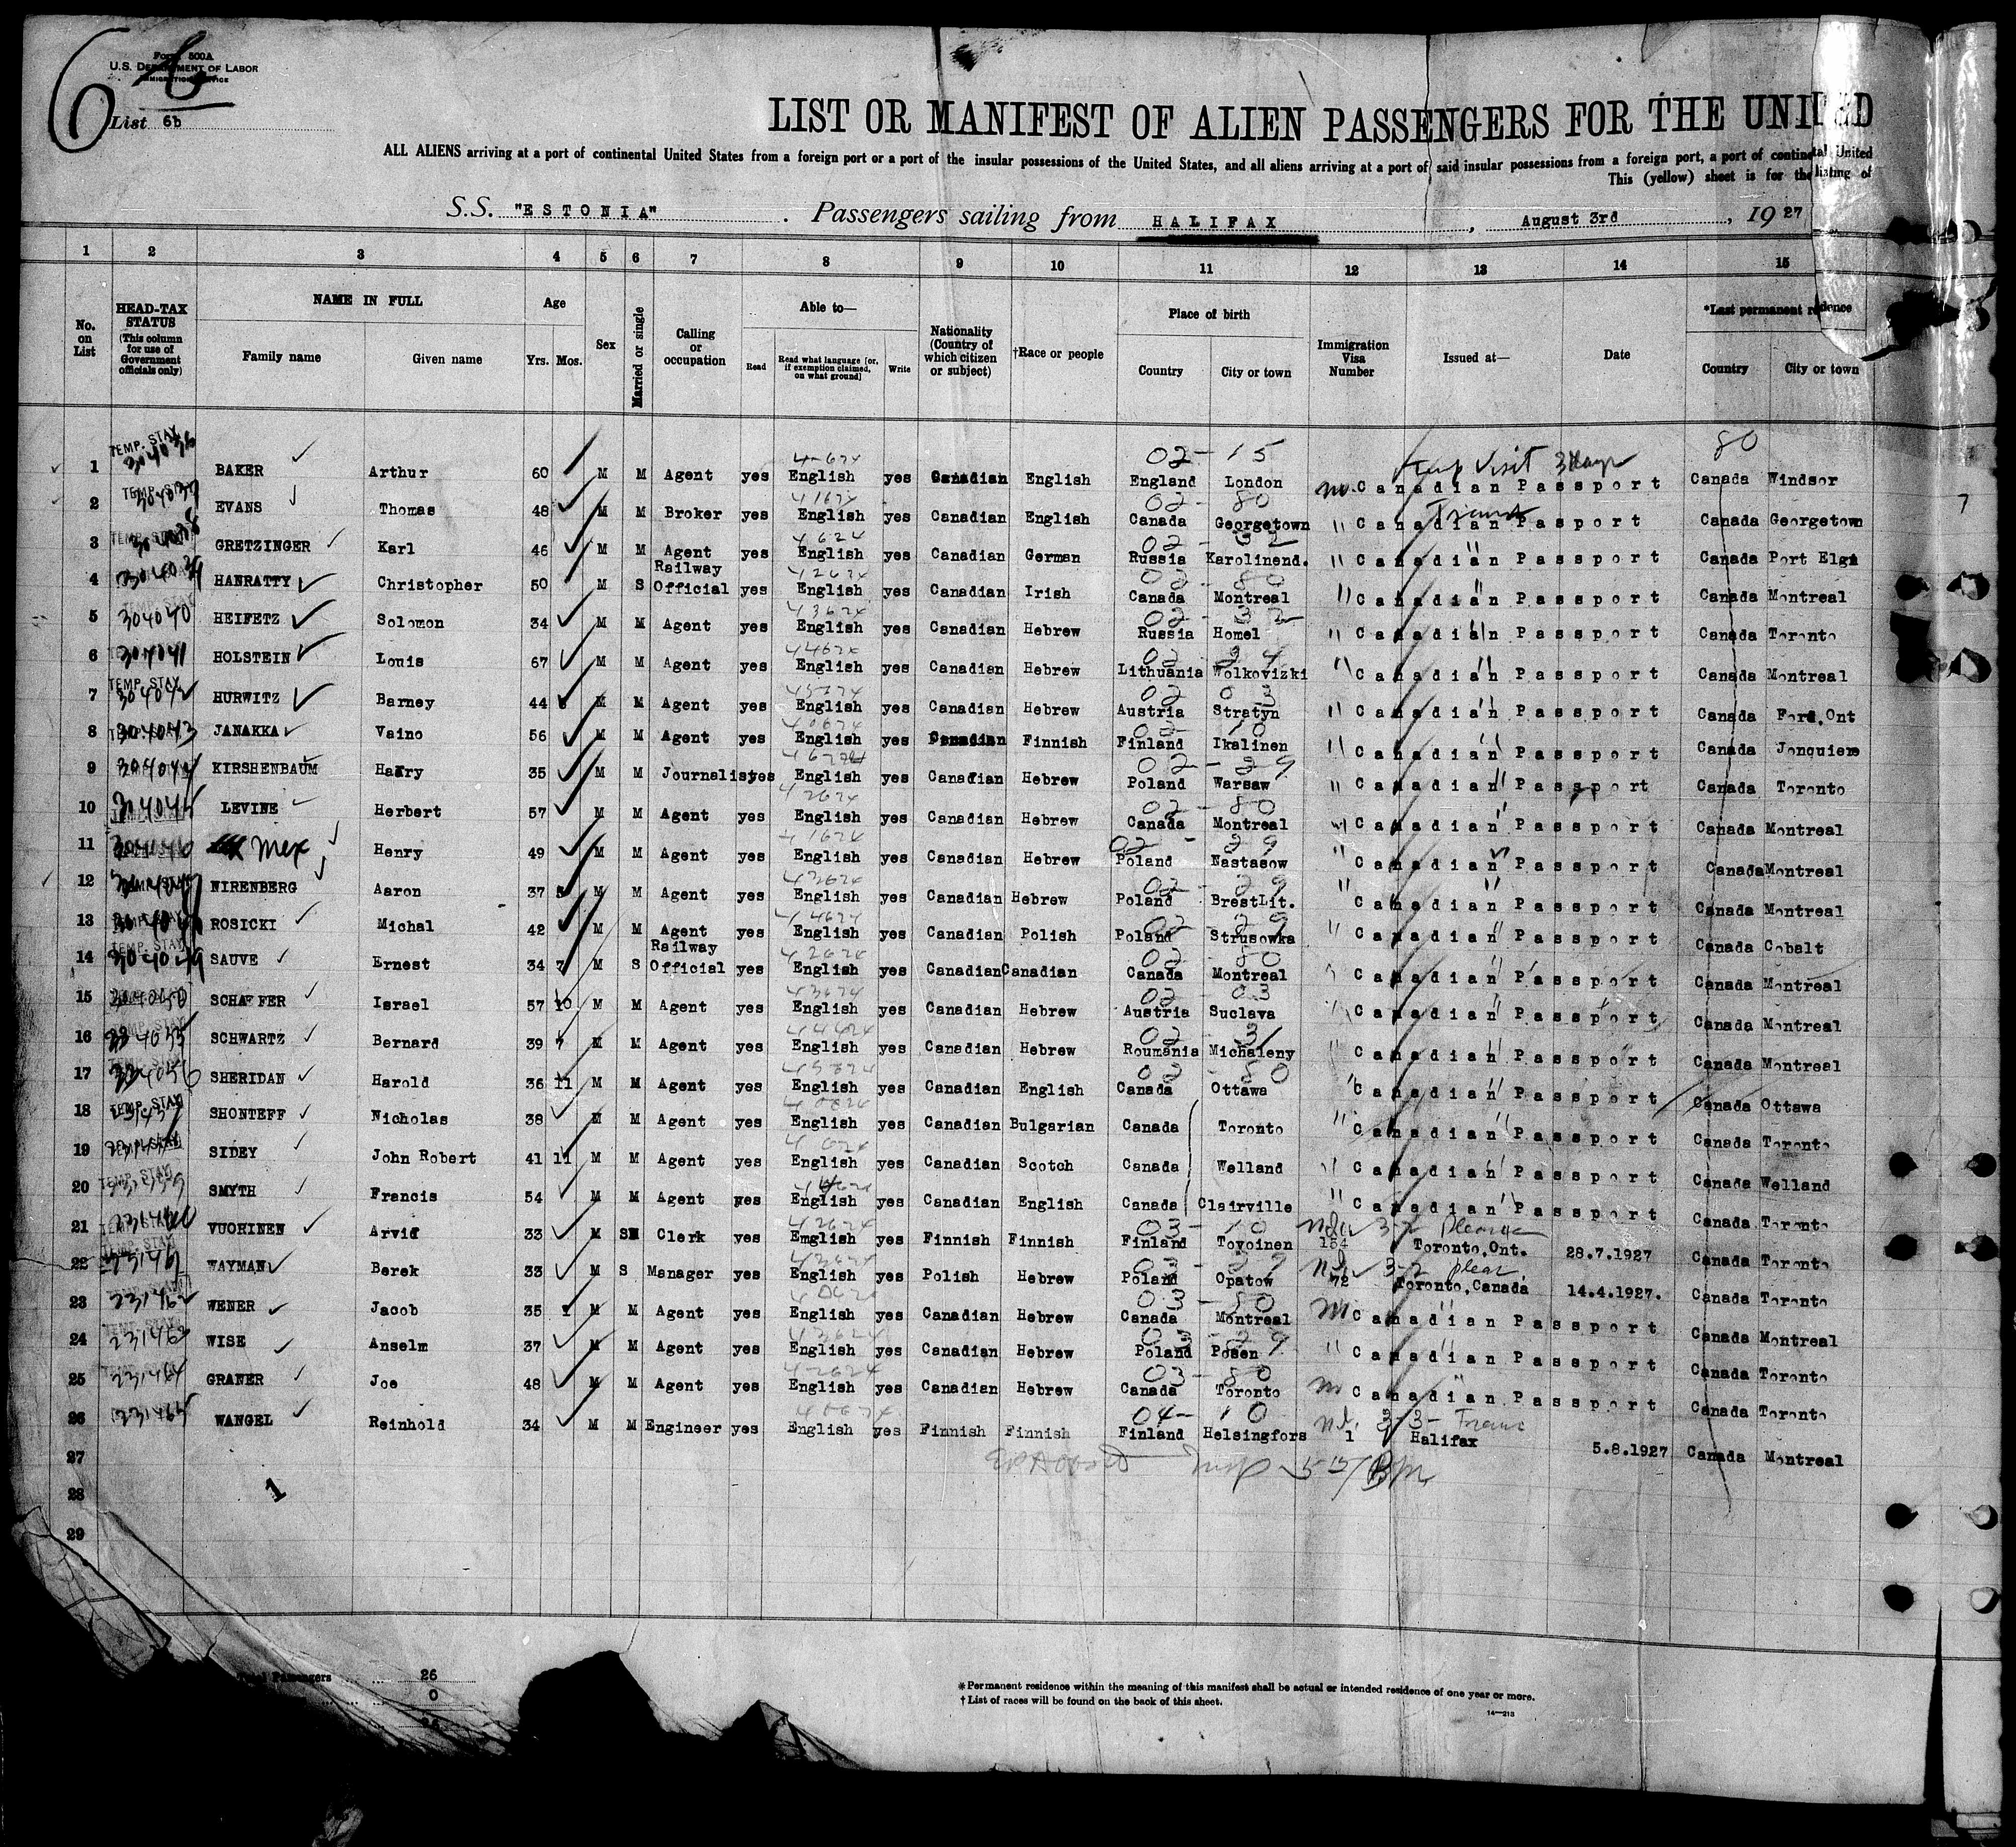 6 6
Form 500A
U.S. DEPARTMENT OF LABOR
IMMIGRATION SERVICE
List 6b
LIST OR MANIFEST OF ALIEN PASSENGERS FOR THE UNITED
ALL ALIENS arriving at a port of continental United States from a foreign port or a port of the insular possessions of the United States, and all aliens arriving at a port of said insular possessions from a foreign port, a port of continental United
This (yellow) sheet is for the listing of
S.S. "ESTONIA" . Passengers sailing from HALIFAX , August 3rd , 19 27
1 2 3 4 5 6 7 8 9 10 11 12 13 14 15
No. on List
HEAD-TAX STATUS (This column for use of Government officials only)
NAME IN FULL
Family name Given name
Age
Yrs. Mos.
Sex
Married or single
Calling or occupation
Able to—
Read Read what language [or, if exemption claimed, on what ground] Write
Nationality (Country of which citizen or subject)
†Race or people
Place of birth
Country City or town
Immigration Visa Number
Issued at—
Date
*Last permanent residence
Country City or town
TEMP. STAY 02-15 Temp Visit 80
1 304036 BAKER Arthur 60 M M Agent yes English yes Canadian English England London Canadian Passport Canada Windsor
2 304037 EVANS Thomas 48 M M Broker yes English yes Canadian English 02-80 Canada Georgetown " Canadian Passport Canada Georgetown
3 304038 GRETZINGER Karl 46 M M Agent yes English yes Canadian German 02-32 Russia Karolinend. " Canadian Passport Canada Port Elgi
4 304039 HANRATTY Christopher 50 M S Railway Official yes English yes Canadian Irish 02-80 Canada Montreal " Canadian Passport Canada Montreal
5 304040 HEIFETZ Solomon 34 M M Agent yes English yes Canadian Hebrew 02-32 Russia Homel " Canadian Passport Canada Toronto
6 304041 HOLSTEIN Louis 67 M M Agent yes English yes Canadian Hebrew 02 24 Lithuania Wolkovizki " Canadian Passport Canada Montreal
7 304042 HURWITZ Barney 44 M M Agent yes English yes Canadian Hebrew 02 03 Austria Stratyn " Canadian Passport Canada Ford,Ont
8 304043 JANAKKA Vaino 56 M M Agent yes English yes Canadian Finnish 02 10 Finland Ikalinen " Canadian Passport Canada Jonquiere
9 304044 KIRSHENBAUM Harry 35 M M Journalist yes English yes Canadian Hebrew 02-29 Poland Warsaw " Canadian Passport Canada Toronto
10 304045 LEVINE Herbert 57 M M Agent yes English yes Canadian Hebrew 02-80 Canada Montreal " Canadian Passport Canada Montreal
11 304046 Mex Henry 49 M M Agent yes English yes Canadian Hebrew 02-29 Poland Nastasow " Canadian Passport Canada Montreal
12 NIRENBERG Aaron 37 5 M M Agent yes English yes Canadian Hebrew 02-29 Poland BrestLit. " Canadian Passport Canada Montreal
13 ROSICKI Michal 42 M M Agent yes English yes Canadian Polish 02 29 Poland Strusowka " Canadian Passport Canada Cobalt
14 304049 SAUVE Ernest 34 7 M S Railway Official yes English yes Canadian Canadian 02-80 Canada Montreal Canadian Passport Canada Montreal
15 304050 SCHAFFER Israel 57 10 M M Agent yes English yes Canadian Hebrew 02-03 Austria Suclava Canadian Passport Canada Montreal
16 SCHWARTZ Bernard 39 7 M M Agent yes English yes Canadian Hebrew 02-31 Roumania Michaleny " Canadian Passport Canada Montreal
17 SHERIDAN Harold 36 11 M M Agent yes English yes Canadian English 02-80 Canada Ottawa Canadian Passport Canada Ottawa
18 SHONTEFF Nicholas 38 M M Agent yes English yes Canadian Bulgarian Canada Toronto " Canadian Passport Canada Toronto
19 SIDEY John Robert 41 11 M M Agent yes English yes Canadian Scotch Canada Welland " Canadian Passport Canada Welland
20 SMYTH Francis 54 M M Agent yes English yes Canadian English Canada Clairville " Canadian Passport Canada Toronto
21 VUOHINEN Arvid 33 M Clerk yes Emglish yes Finnish Finnish 03-10 Finland Tovoinen 154 3-2 Toronto,Ont. 28.7.1927 Canada Toronto
22 WAYMAN Berek 33 M S Manager yes English yes Polish Hebrew 03-29 Poland Opatow 72 3-2 Toronto,Canada 14.4.1927. Canada Toronto
23 231462 WENER Jacob 35 1 M M Agent yes English yes Canadian Hebrew 03-80 Canada Montreal Canadian Passport Canada Montreal
24 231463 WISE Anselm 37 M M Agent yes English yes Canadian Hebrew 03-29 Poland Posen " Canadian Passport Canada Toronto
25 231464 GRANER Joe 48 M M Agent yes English yes Canadian Hebrew 03-80 Canada Toronto Canadian Passport Canada Toronto
26 231465 WANGEL Reinhold 34 M M Engineer yes English yes Finnish Finnish 04-10 Finland Helsingfors 1 3-3- Halifax 5.8.1927 Canada Montreal
27
28 1
29
Total Passengers 26
0
26
*Permanent residence within the meaning of this manifest shall be actual or intended residence of one year or more.
†List of races will be found on the back of this sheet.
14—213